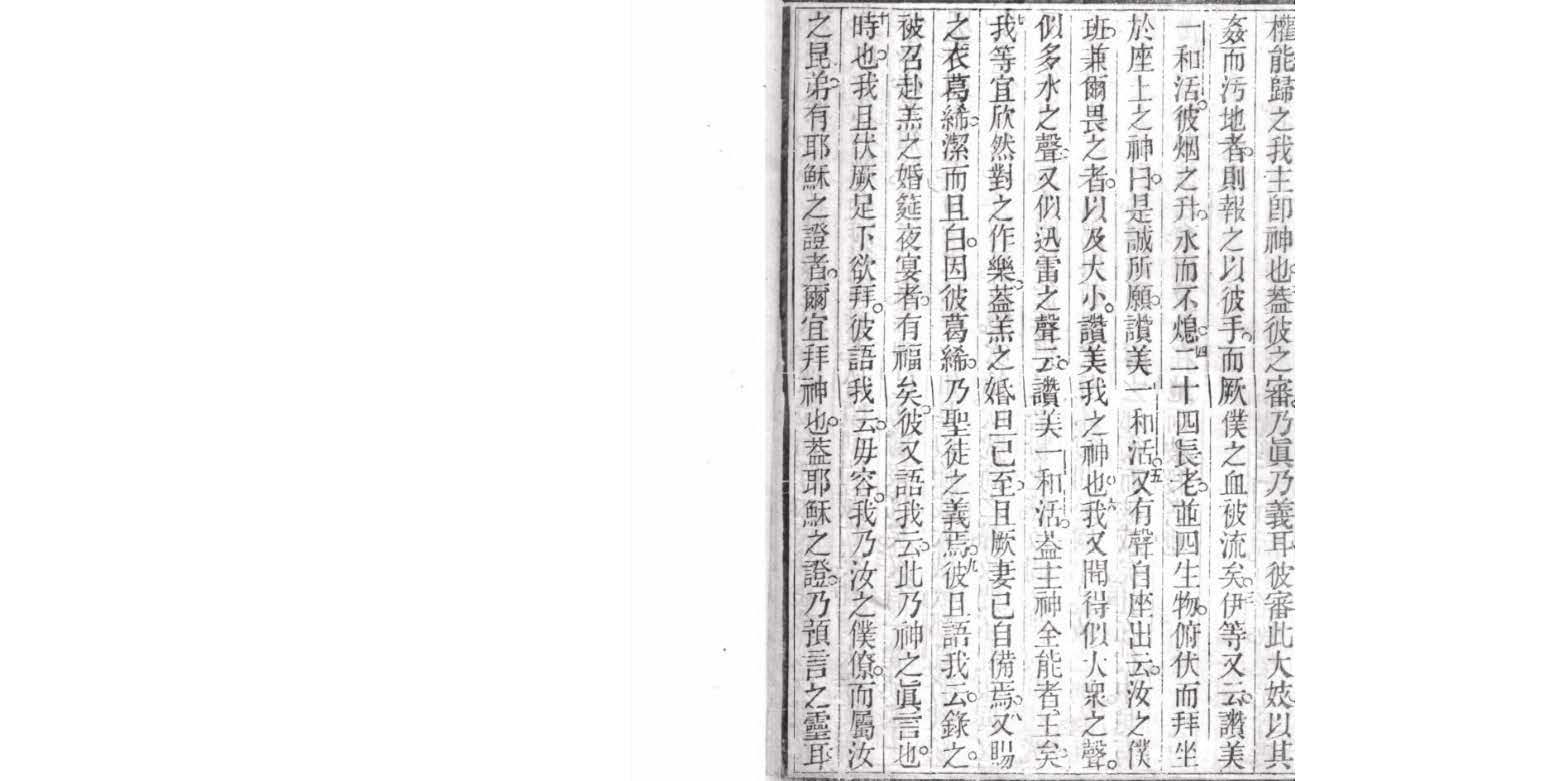 權能歸之我主卽神也。蓋彼之審。乃眞乃義耳。彼審此大妓。以其
姦而污地者。則報之以彼手。而厥僕之血被流矣。三伊等又云。讚美
一和活。彼烟之升。永而不熄。四二十四長老。並四生物。俯伏而拜坐
於座上之神曰。是誠所願。讚美一和活。五又有聲自座出云。汝之僕
班。兼爾畏之者。以及大小。讚美我之神也。六我又聞得似大衆之聲。
似多水之聲。又似迅雷之聲云。讚美一和活。蓋主神全能者王矣。
七我等宜欣然對之作樂。蓋羔之婚旦已至。且厥妻已自備焉。八又賜
之衣葛絺。潔而且白。因彼葛絺。乃聖徒之義焉。九彼且語我云。錄之。
被召赴羔之婚筵夜宴者。有福矣。彼又語我云。此乃神之眞言也。
十時也。我且伏厥足下欲拜。彼語我云。毋容。我乃汝之僕僚。而屬汝
之昆弟。有耶穌之證者。爾宜拜神也。蓋耶穌之證。乃預言之靈耳